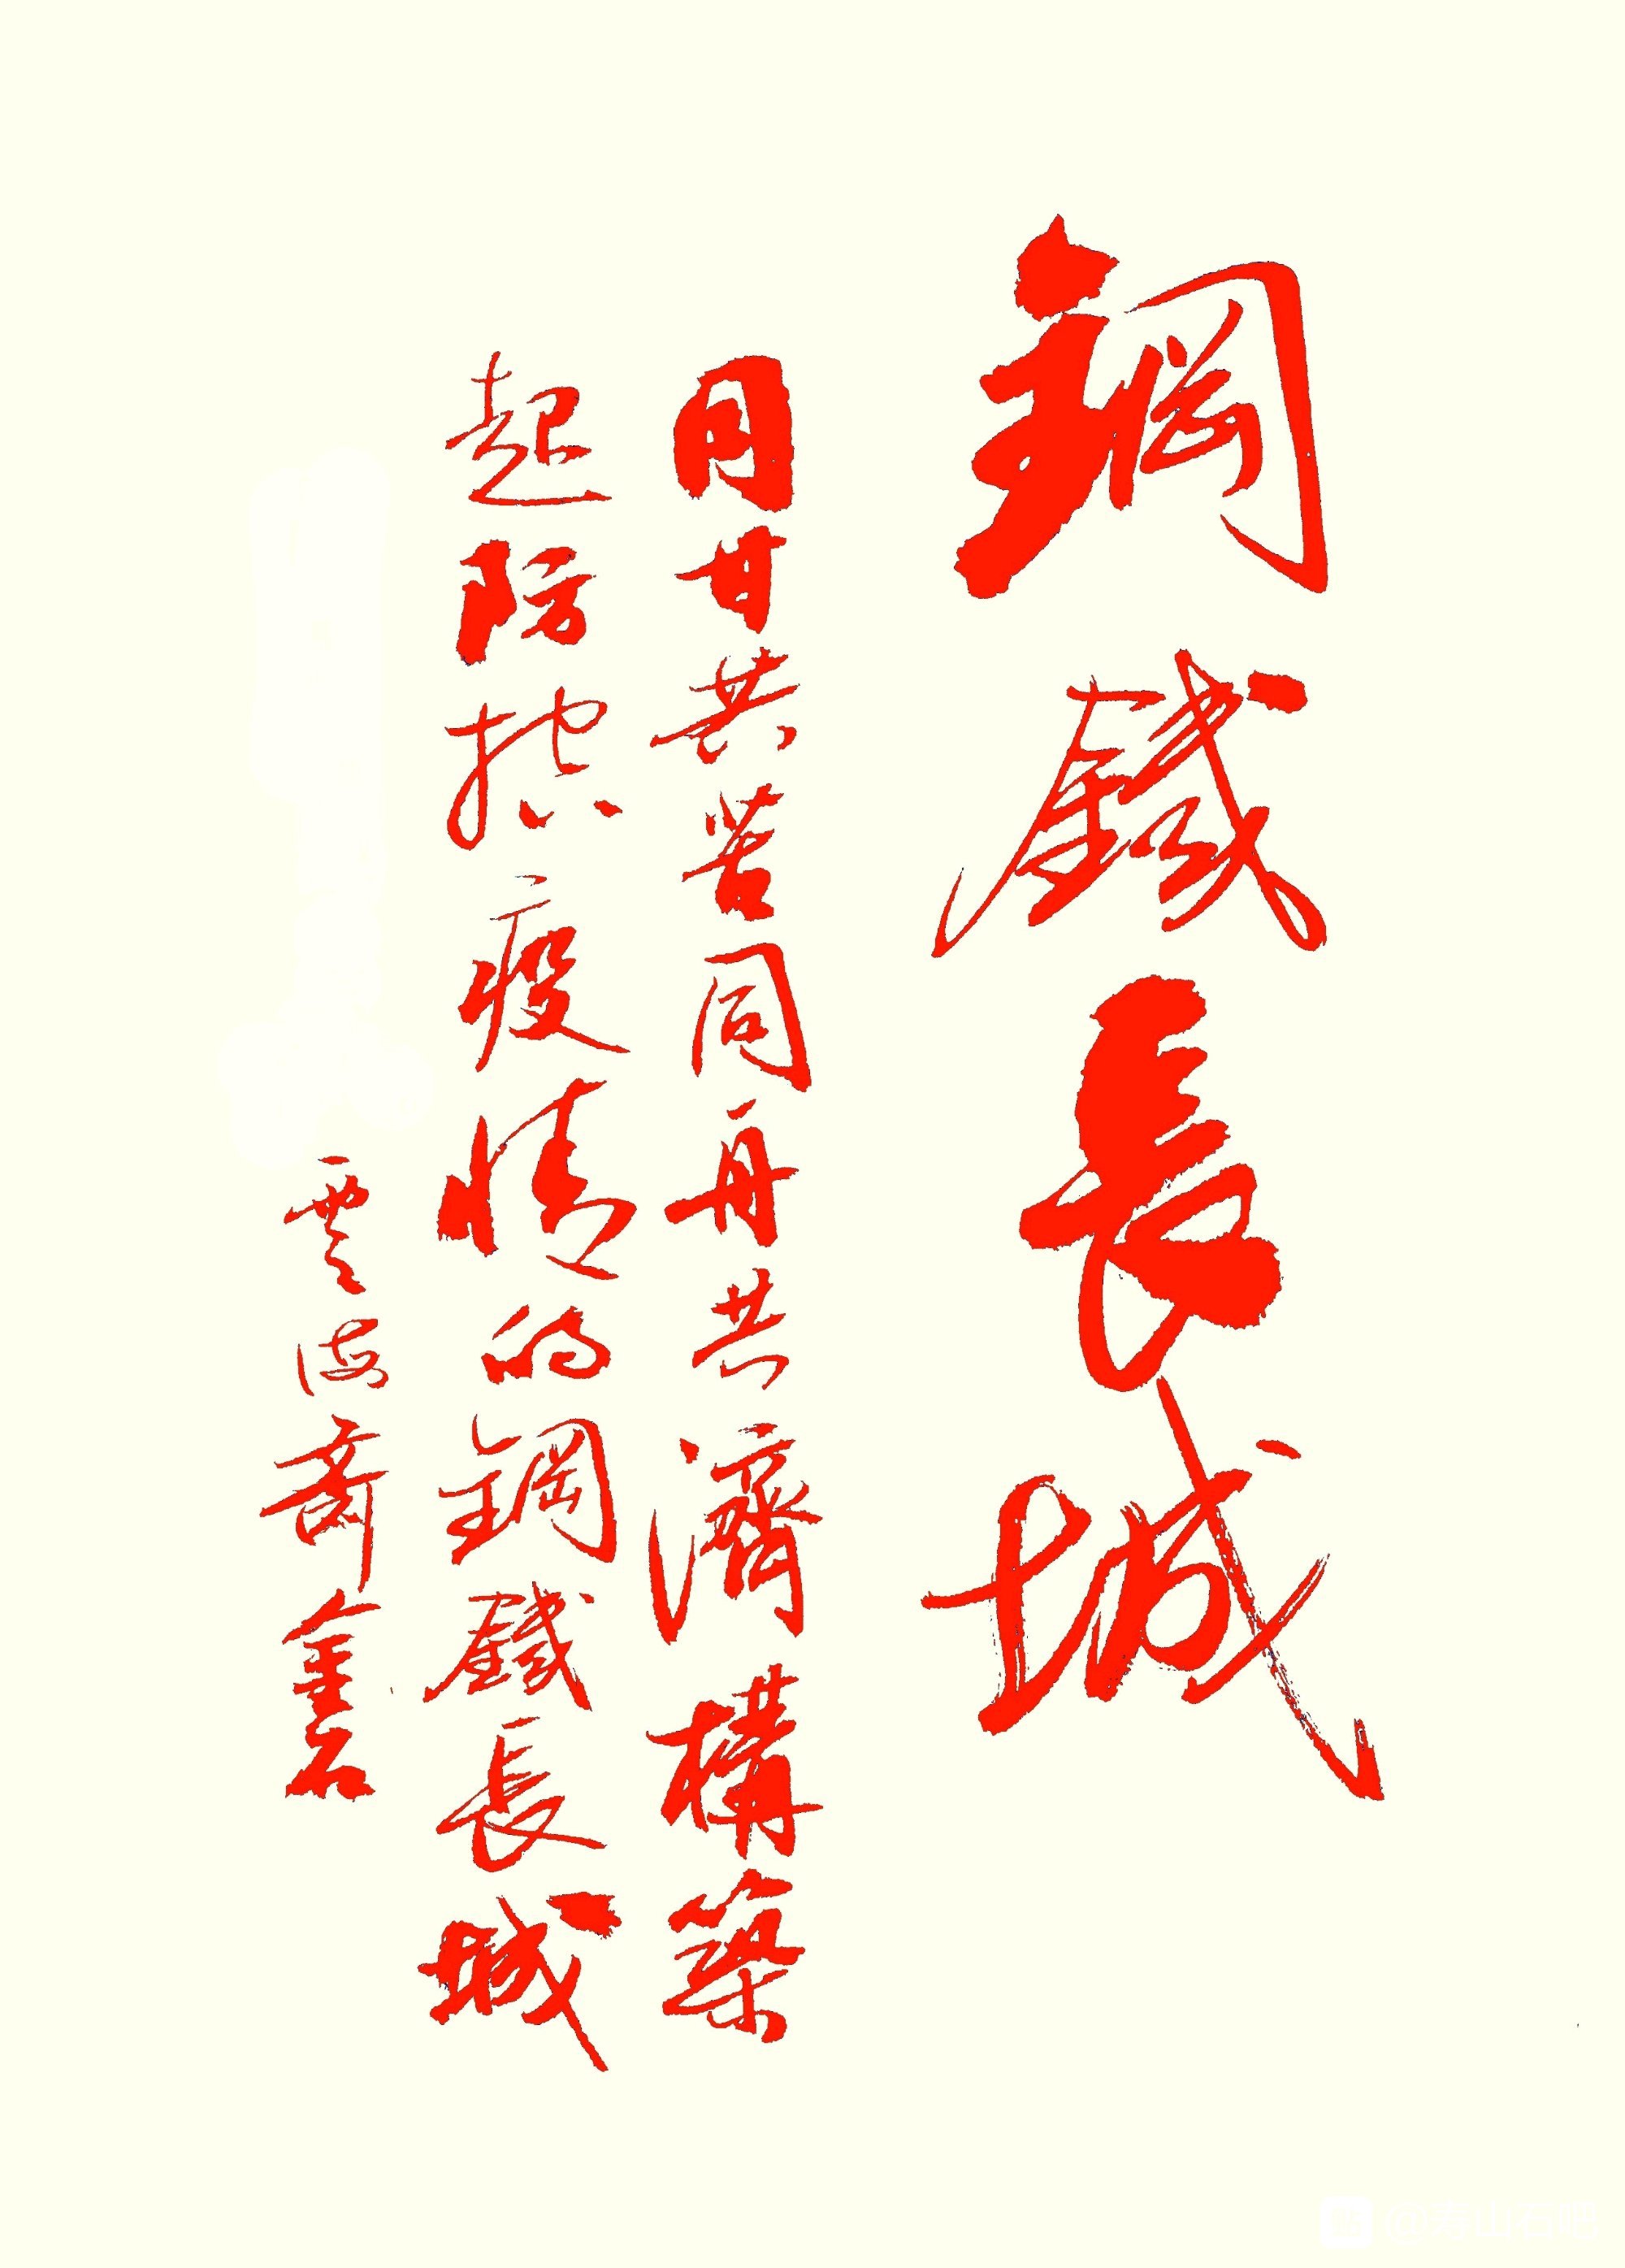 鋼鐵長城
同甘共苦同舟共濟構築
起防控疫情的鋼鐵長城
雲海齋金石